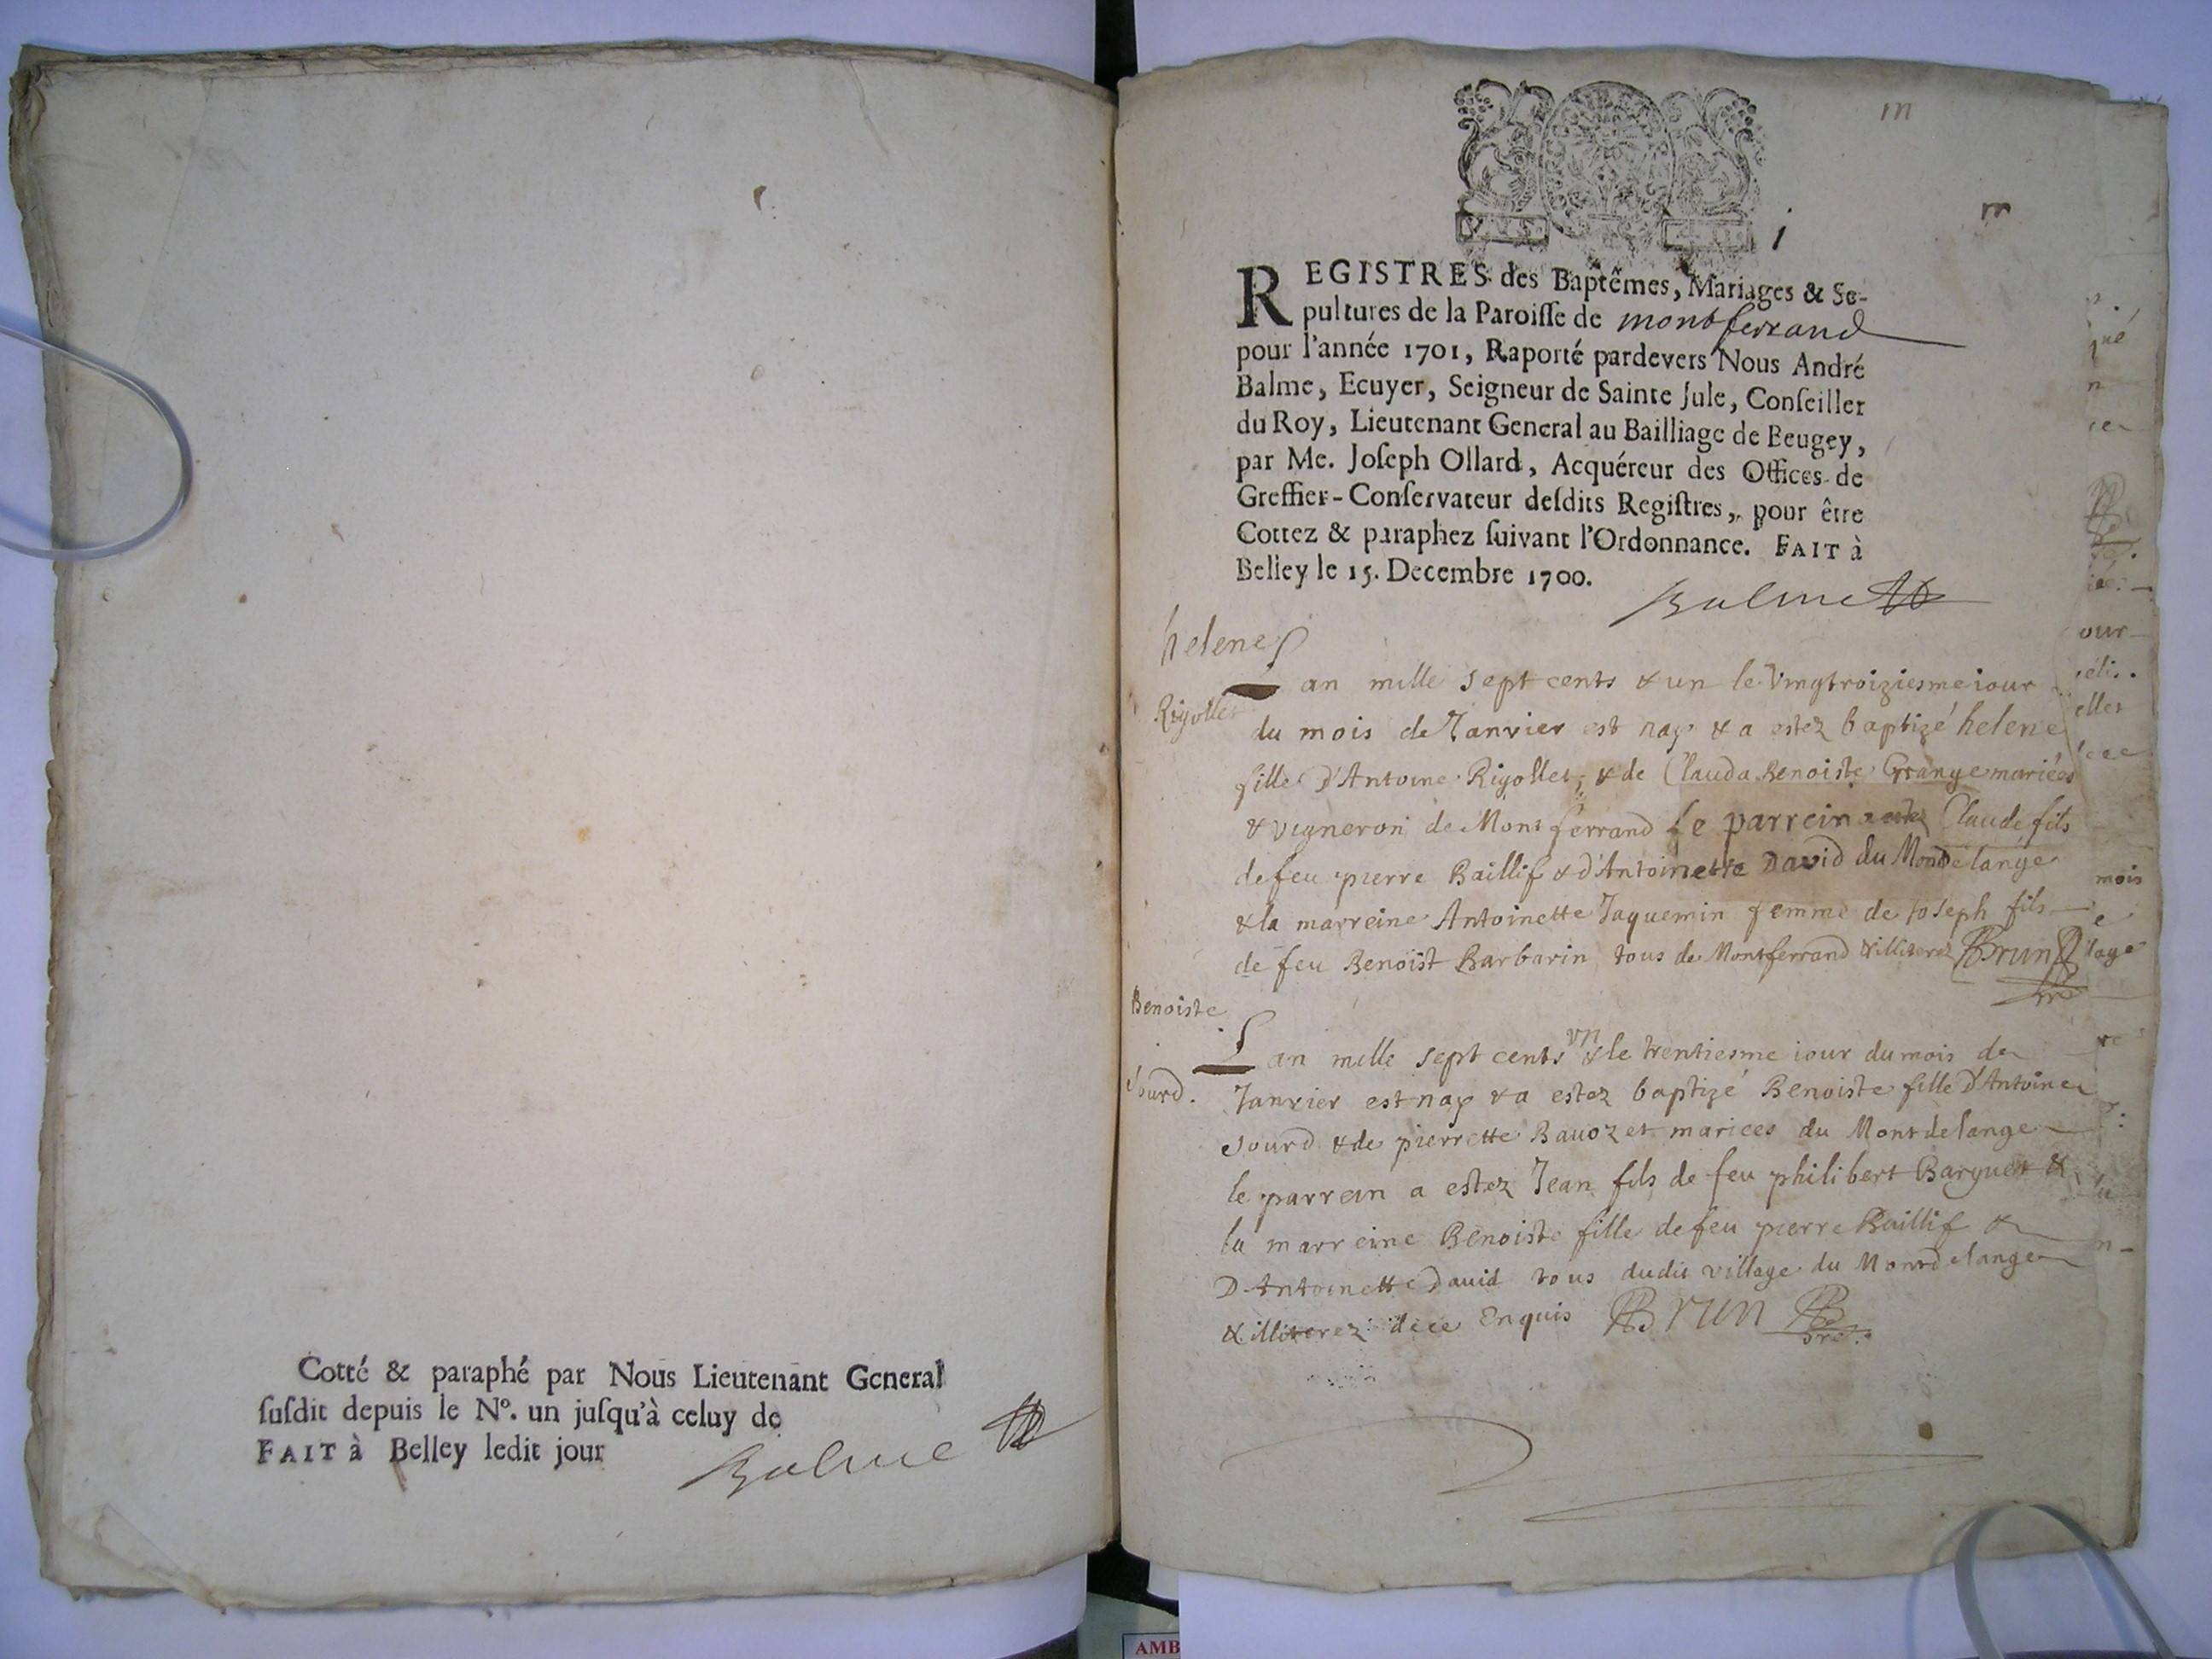 Cotté & paraphé par Nous Lieutenant General
ſuſdit depuis le N°. un juſqu'à celuy de
FAIT à Belley ledit jour
Balme
m
m
1
REGISTRES des Baptêmes, Mariages & Se-
pultures de la Paroiſſe de montferrand
pour l'année 1701, Raporté pardevers Nous André
Balme, Ecuyer, Seigneur de Sainte Jule, Conſeiller
du Roy, Lieutenant General au Bailliage de Beugey,
par Me. Joſeph Ollard, Acquéreur des Offices de
Greffier-Conſervateur deſdits Regiſtres, pour être
Cottez & paraphez ſuivant l'Ordonnance. FAIT à
Belley le 15. Decembre 1700.
Balme
helene
Rigollet
Lan mille sept cents & un le Vingtroiziesme iour
du mois de Janvier est nay & a estez baptizé helene
fille D'Antoine Rigollet, & de Clauda Benoiste Grange mariées
& vigneron de Montferrand Le parrein a estez Claude fils
de feu pierre Baillif & d'Antoinette David du Mondelange
& la marreine Antoinette Jaquemin femme de Joseph fils
de feu Benoist Barbarin tous de Montferrand & illiterez Brun
Benoiste
Sourd.
Lan mille sept cents vn & le trentiesme iour du mois de
Janvier est nay & a estez baptizé Benoiste fille D'Antoine
Sourd & de pierrette Bauozet mariees du Montdelange
le parrein a estez Jean fils de feu philibert Barguet &
la marreine Benoiste fille de feu pierre Baillif &
D'Antoinette Dauid tous dudit village du Montdelange
& illiterez de ce Enquis Brun
AMB